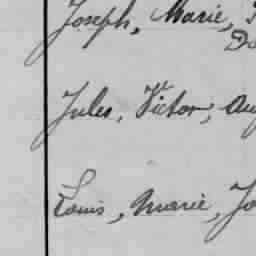 Joseph, Marie,
Jules, Victor,
Louis, Marie,